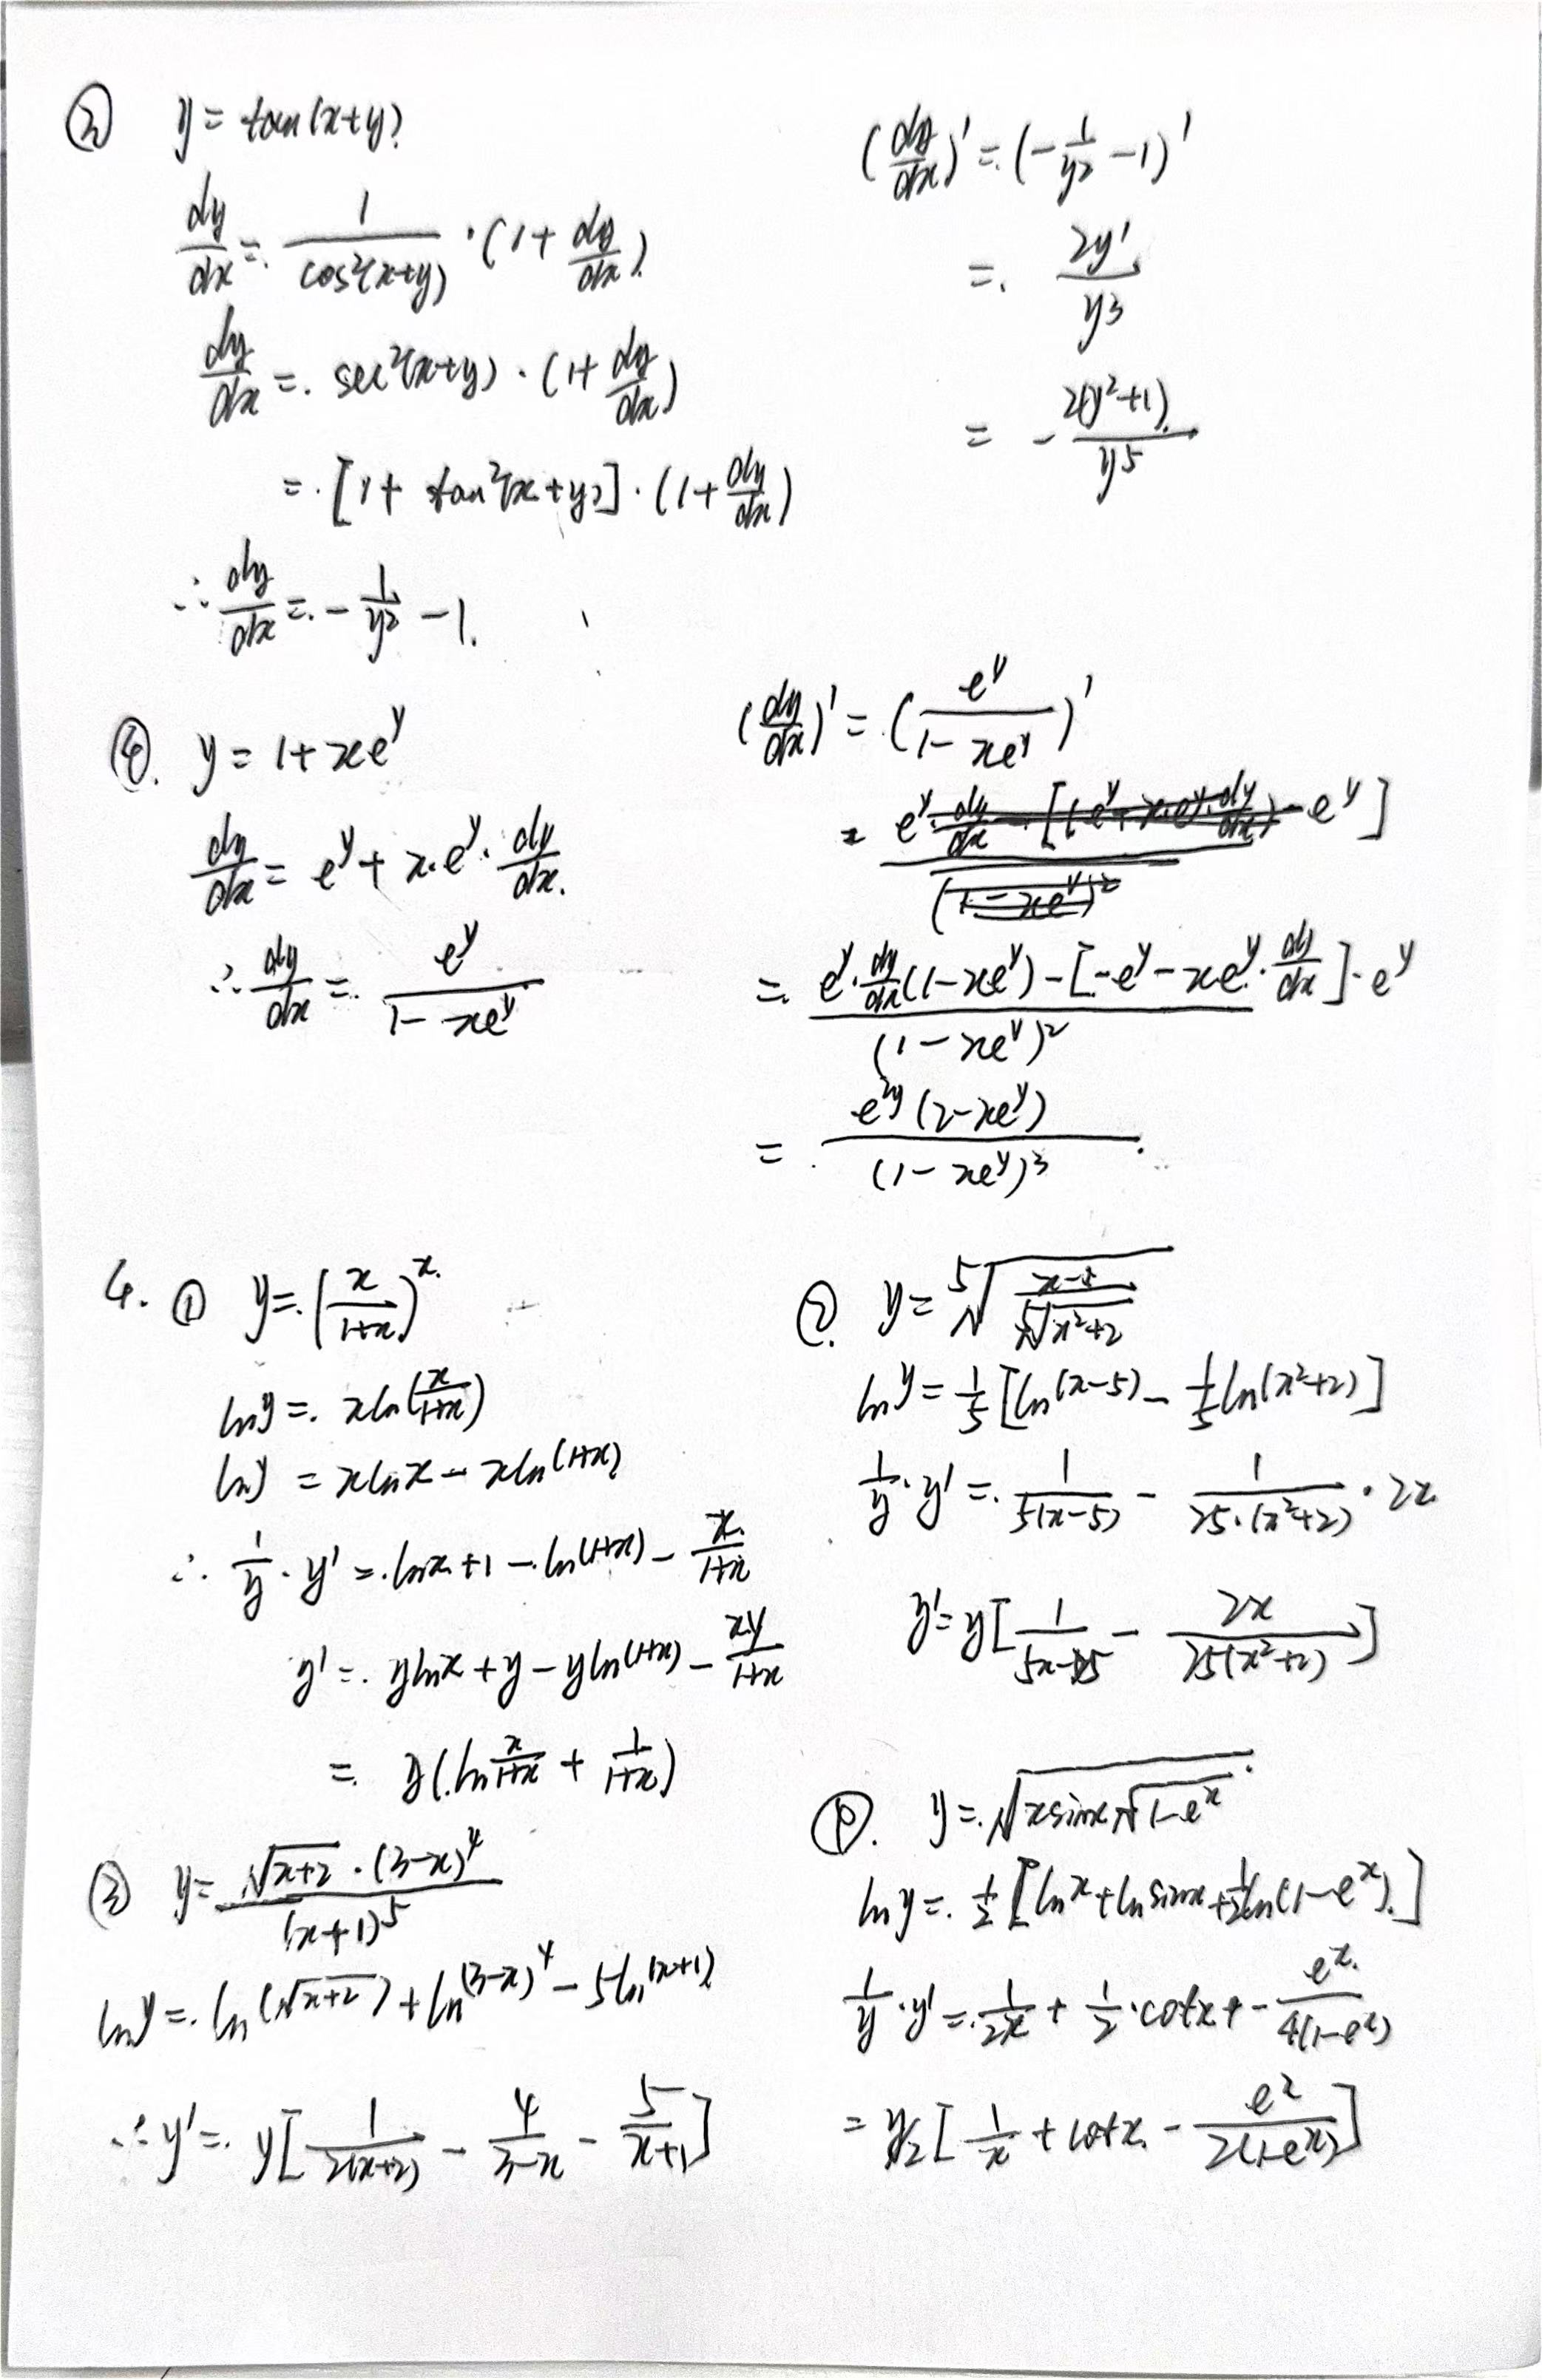 ③ y = tan(x+y)
dy/dx = 1/cos²(x+y) · (1 + dy/dx)
dy/dx = sec²(x+y) · (1 + dy/dx)
= [1 + tan²(x+y)] · (1 + dy/dx)
∴ dy/dx = -1/y² - 1.
(dy/dx)' = (-1/y² - 1)'
= 2y'/y³
= -2(y²+1)/y⁵
④. y = 1 + xe^y
dy/dx = e^y + x·e^y · dy/dx.
∴ dy/dx = e^y/(1 - xe^y)
(dy/dx)' = (e^y/(1 - xe^y))'
= [e^y · dy/dx (1 - xe^y) - [-e^y - xe^y · dy/dx] · e^y]/(1 - xe^y)²
= e^(2y)(2 - xe^y)/(1 - xe^y)³.
4. ① y = (x/(1+x))^x
lny = xln(x/(1+x))
lny = xlnx - xln(1+x)
∴ 1/y · y' = lnx + 1 - ln(1+x) - x/(1+x)
y' = ylnx + y - yln(1+x) - xy/(1+x)
= y(ln x/(1+x) + 1/(1+x))
②. y = ⁵√((x-5)/⁵√(x²+2))
lny = 1/5[ln(x-5) - 1/5 ln(x²+2)]
1/y · y' = 1/(5(x-5)) - 1/(25·(x²+2)) · 2x
y' = y[1/(5x-25) - 2x/(25(x²+2))]
③ y = √(x+2) · (3-x)⁴/(x+1)⁵
lny = ln(√(x+2)) + ln(3-x)⁴ - 5ln(x+1)
∴ y' = y[1/(2(x+2)) - 4/(3-x) - 5/(x+1)]
④. y = √(xsinx√(1-e^x))
lny = 1/2[lnx + lnsinx + 1/2 ln(1-e^x)]
1/y · y' = 1/(2x) + 1/2 · cotx + - e^x/(4(1-e^x))
= y/2[1/x + cotx - e^x/(2(1-e^x))]